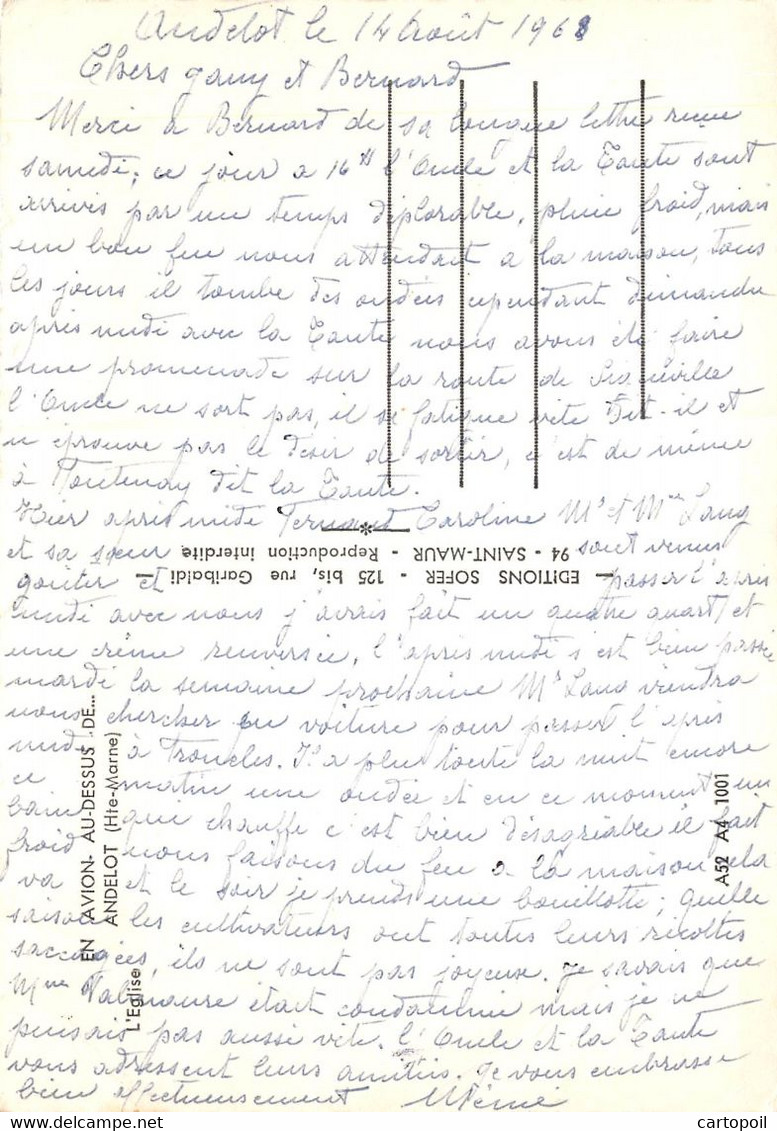 Andelot le 14 Août 1968
Chers gany et Bernard
Merci à Bernard de sa longue lettre reçue
samedi, ce jour a 16H l'Oncle et la Tante sont
arrivés par un temps déplorable, pluie froid, mais
un bon feu nous attendait a la maison, Tous
les jours il tombe des ondées cependant dimanche
après midi avec la Tante nous avons été faire
une promenade sur la route de
l'Oncle ne sort pas, il se fatigue vite dit-il et
n éprouve pas le désir de sortir, c'est de même
à Fontenay dit la Tante.
Hier après midi Fernand Caroline Mr et Mme Lang
et sa sœur sont venus
goûter et passer l'après
midi avec nous j'avais fait un quatre quart, et
une crème renversée, l'après midi s'est bien passée
mardi la semaine prochaine Mr Lang viendra
nous chercher en voiture pour passer l'après
midi à Froncles. Il a plu toute la nuit encore
ce matin une ondée et en ce moment un
bain qui chauffe c'est bien désagréable il fait
froid nous faisons du feu a la maison cela
va et le soir je prends une bouillotte; quelle
saison les cultivateurs ont toutes leurs récoltes
saccagées, ils ne sont pas joyeuse. Je savais que
Mme était mais je ne
pensais pas aussi vite. l'Oncle et la Tante
vous adressent leurs amitiés. Je vous embrasse
bien affectueusement Mémé
EDITIONS SOFER - 125 bis, rue Garibaldi
94 - SAINT-MAUR - Reproduction interdite
EN AVION AU-DESSUS DE...
ANDELOT (Hte-Marne)
L'Eglise
A52 A4 1001
cartopoil